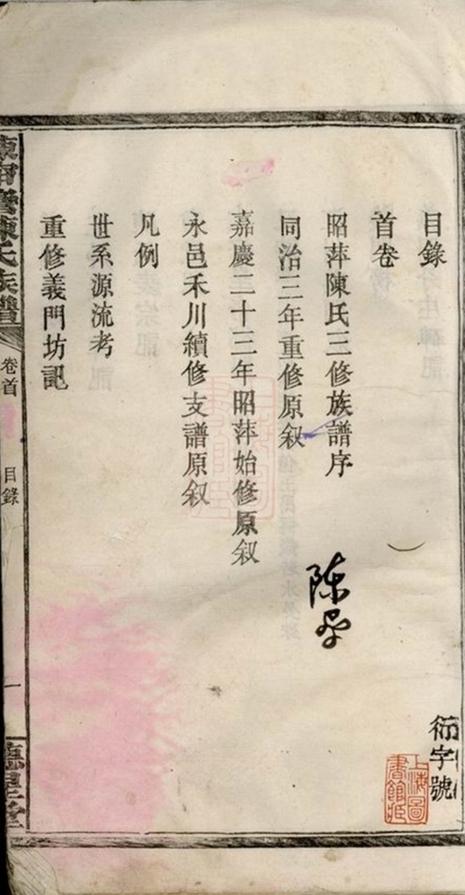 目錄
首卷
昭萍陳氏三修族譜序
同治三年重修原叙
嘉慶二十三年昭萍始修原叙
永邑禾川續修支譜原叙
凡例
世系源流考
重修義門坊記
陳氏族譜
卷首
目錄
一
衍字號
上海圖書館藏
陳